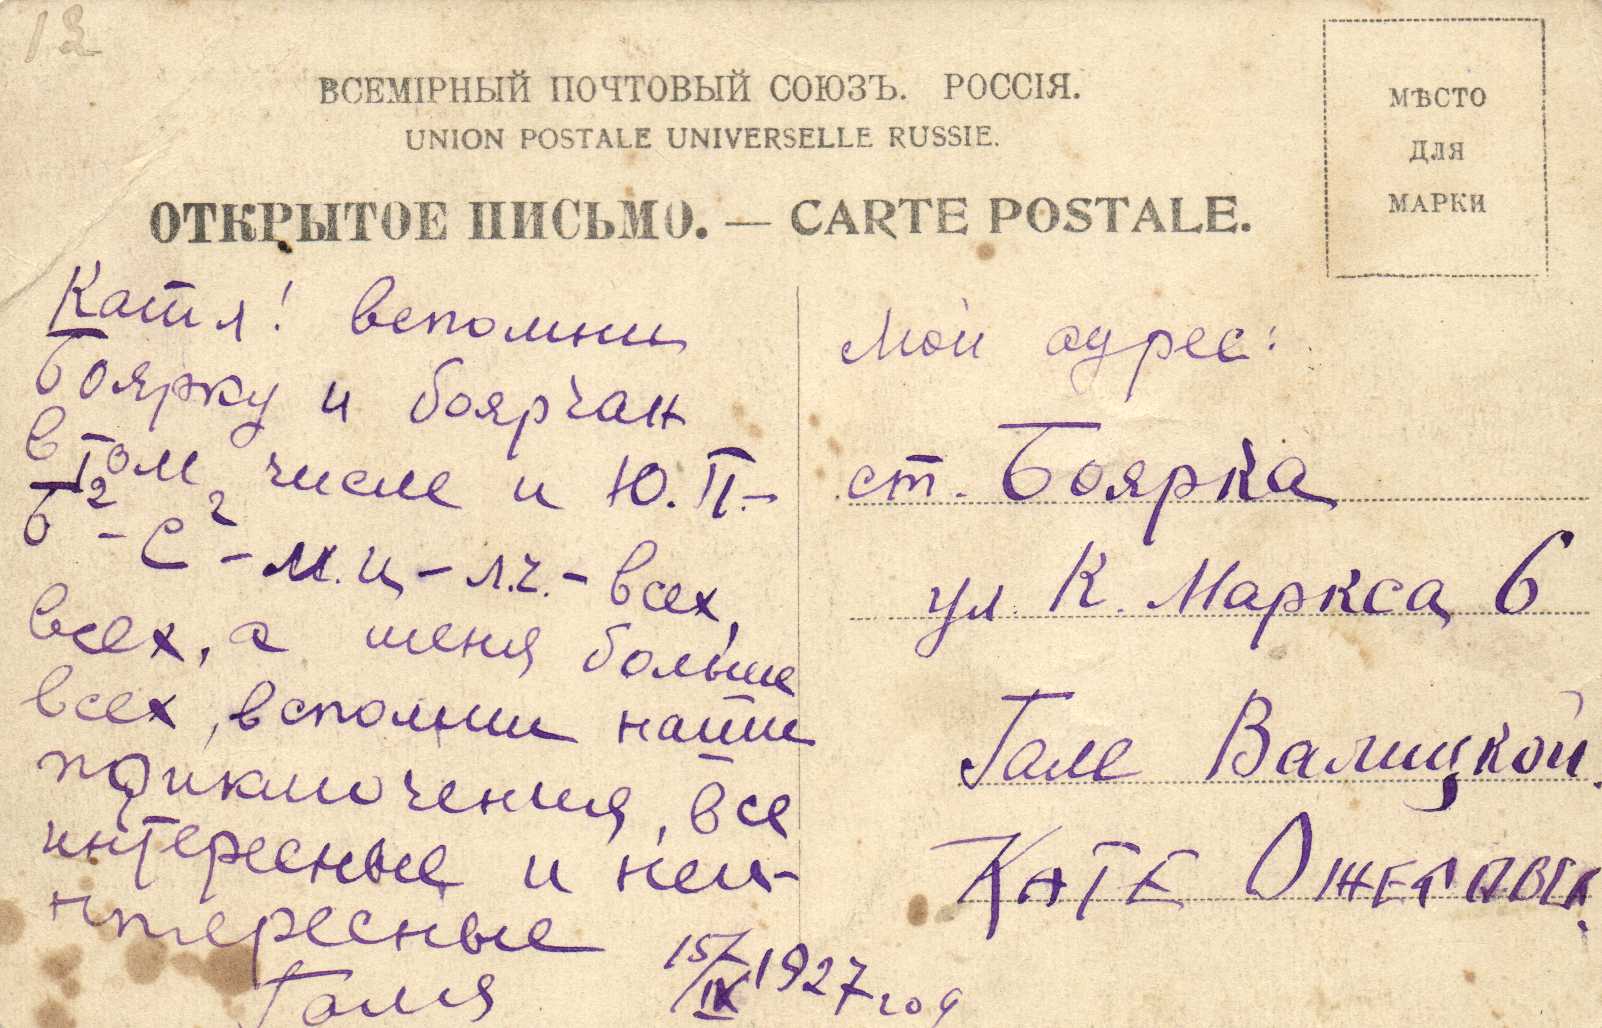 13
ВСЕМІРНЫЙ ПОЧТОВЫЙ СОЮЗЪ. РОССІЯ.
UNION POSTALE UNIVERSELLE RUSSIE.
ОТКРЫТОЕ ПИСЬМО. — CARTE POSTALE.
МѢСТО
ДЛЯ
МАРКИ
Катя! вспомни
Боярку и боярчан
в том числе и Ю.П.-
Б2-С2-м.ц-л.г.-всех,
всех, а меня больше
всех, вспомни наши
приключения, все
интересные и неи-
нтересные
Галя
15/IX 1927 год
Мой адрес:
ст. Боярка
ул. К. Маркса 6
Гале Валицкой.
КАТЕ